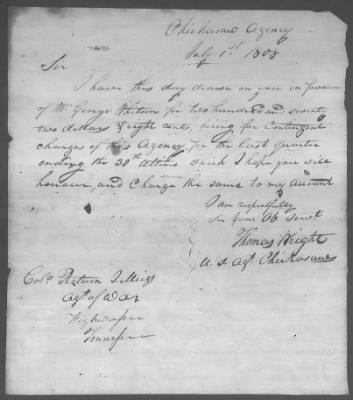 Chickasaw Agency
July 1st 1808
Sir
I have this day drawn on you in favour
of Mr George Whitson for two hundred and seventy
two dollars & eight cents, being for Contingent
charges of this Agency, for the last quarter
ending the 30th Ultimo which I hope you will
honour, and Charge the same to my account
I am respectfully
Sir your Ob Servt
Thomas Wright
U. S. Agt Chickasaws
Colo. Return J. Meigs
Agt of War
Highwassee
Tennessee